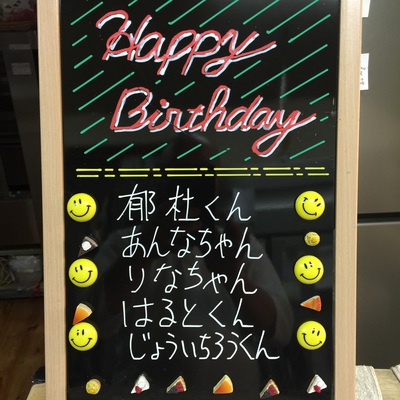 Happy
Birthday
郁杜くん
あんなちゃん
りなちゃん
はるとくん
じょういちろうくん